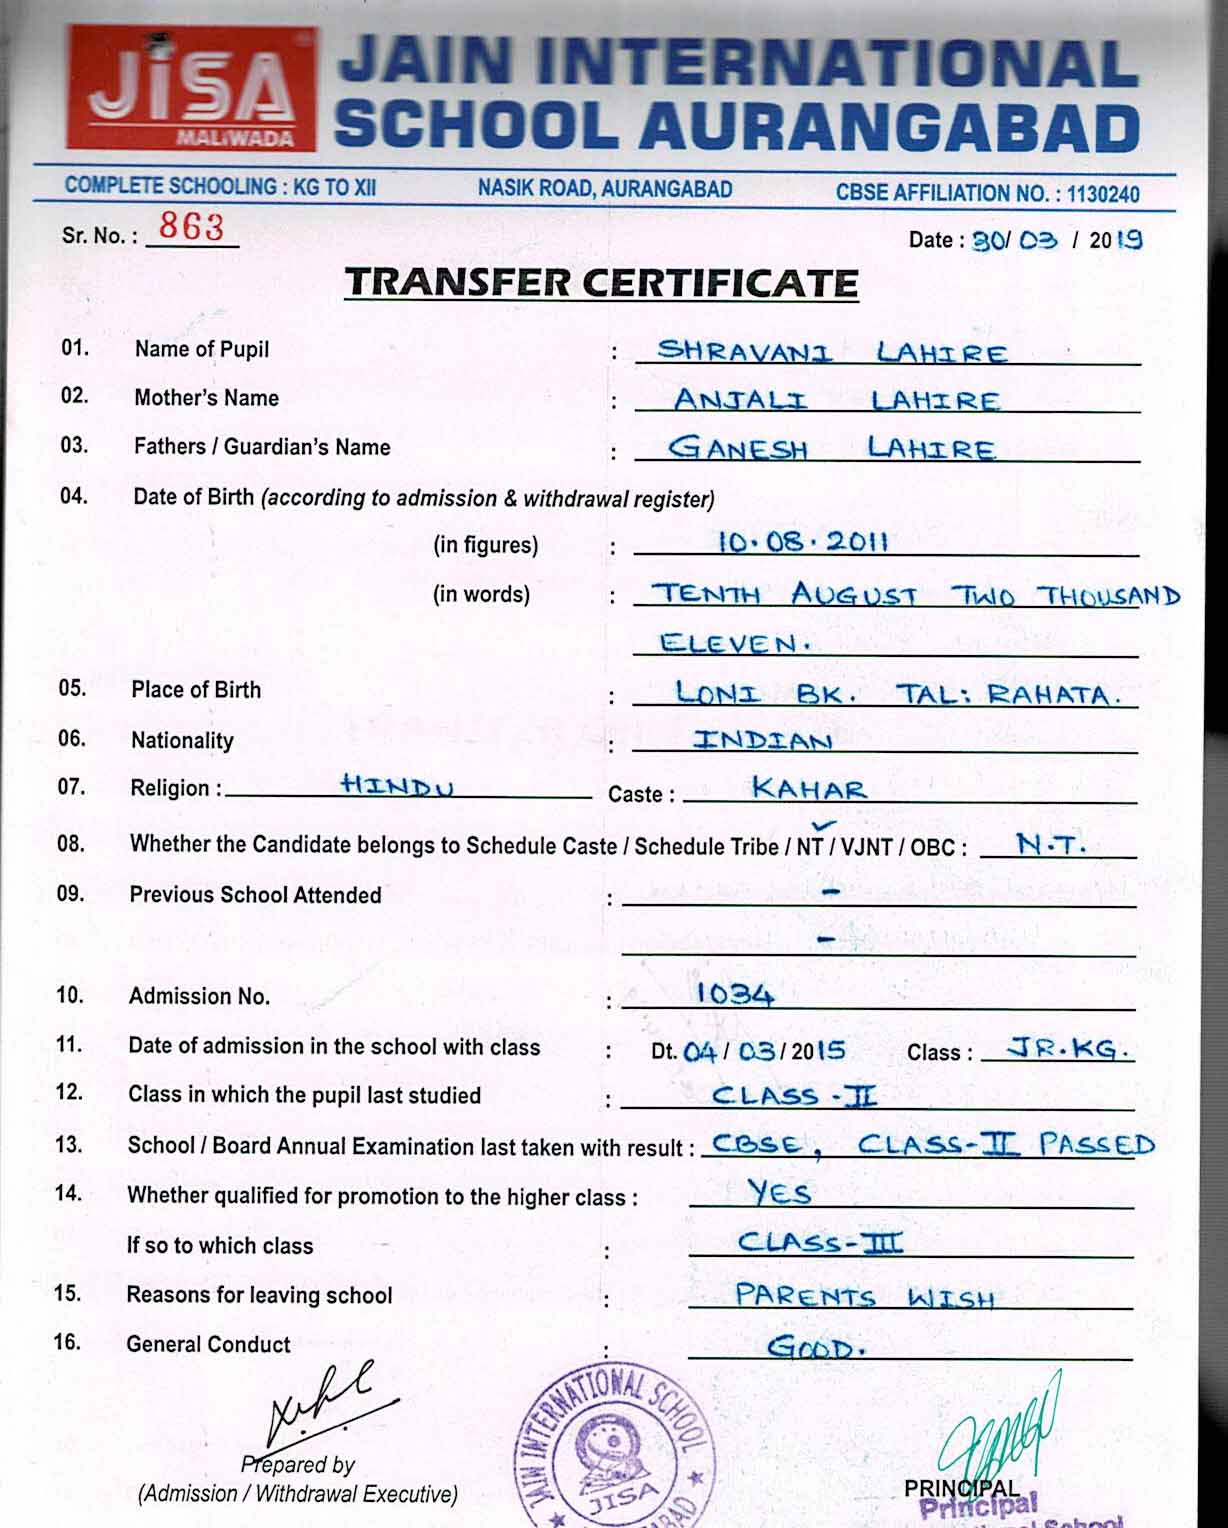 JiSA
MALiWADA
JAIN INTERNATIONAL
SCHOOL AURANGABAD
COMPLETE SCHOOLING : KG TO XII NASIK ROAD, AURANGABAD CBSE AFFILIATION NO. : 1130240
Sr. No. : 863 Date : 30/ 03 / 2019
TRANSFER CERTIFICATE
01. Name of Pupil : SHRAVANI LAHIRE
02. Mother's Name : ANJALI LAHIRE
03. Fathers / Guardian's Name : GANESH LAHIRE
04. Date of Birth (according to admission & withdrawal register)
(in figures) : 10.08.2011
(in words) : TENTH AUGUST TWO THOUSAND
ELEVEN.
05. Place of Birth : LONI BK. TAL: RAHATA.
06. Nationality : INDIAN
07. Religion : HINDU Caste : KAHAR
08. Whether the Candidate belongs to Schedule Caste / Schedule Tribe / NT / VJNT / OBC : N.T.
09. Previous School Attended : -
-
10. Admission No. : 1034
11. Date of admission in the school with class : Dt. 04 / 03 / 2015 Class : JR.KG.
12. Class in which the pupil last studied : CLASS - II
13. School / Board Annual Examination last taken with result : CBSE, CLASS-II PASSED
14. Whether qualified for promotion to the higher class : YES
If so to which class : CLASS-III
15. Reasons for leaving school : PARENTS WISH
16. General Conduct : GOOD.
JAIN INTERNATIONAL SCHOOL
JISA
Prepared by
(Admission / Withdrawal Executive)
PRINCIPAL
Principal
School